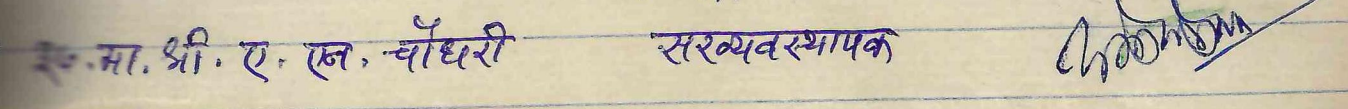 मा. श्री. ए. एन. चौधरी सरव्यवस्थापक